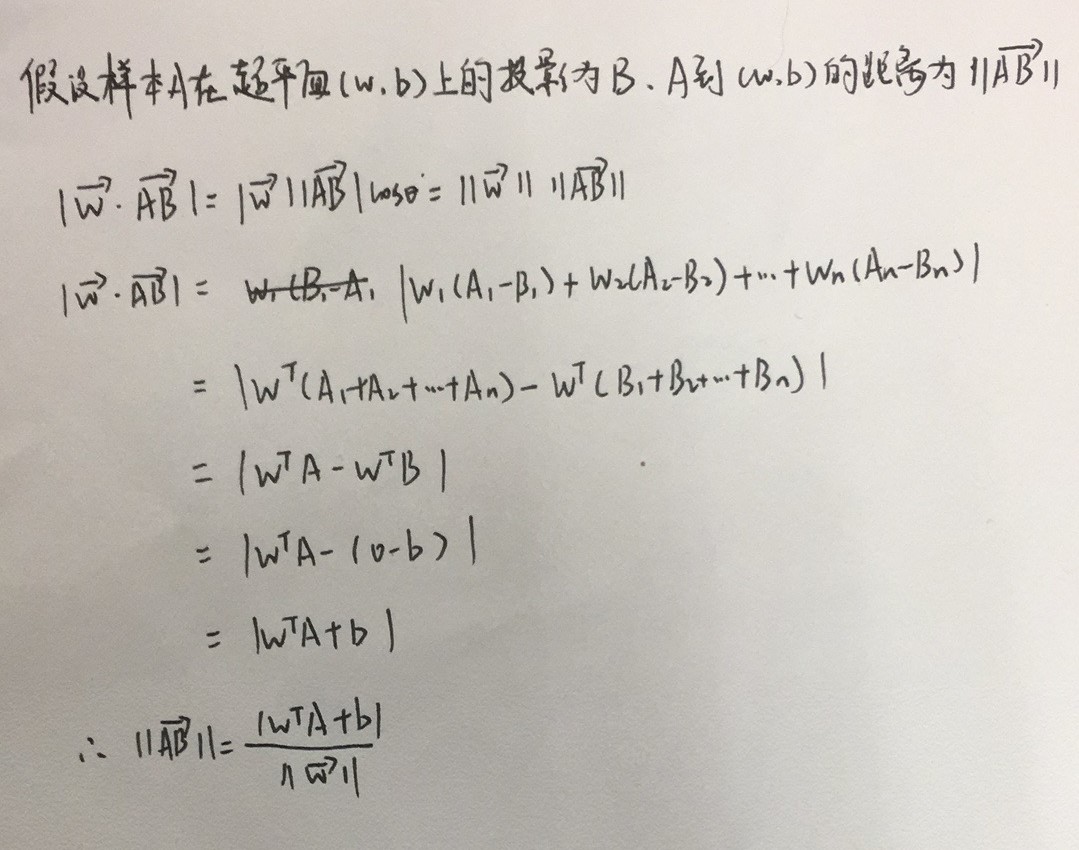 假设样本A在超平面(w,b)上的投影为B、A到(w,b)的距离为||\overrightarrow{AB}||
|\vec{w}·\overrightarrow{AB}|=|\vec{w}||\overrightarrow{AB}|cosθ=||\vec{w}|| ||\overrightarrow{AB}||
|\vec{w}·\overrightarrow{AB}|= w₁(B₁-A₁ |w₁(A₁-B₁)+w₂(A₂-B₂)+…+wₙ(Aₙ-Bₙ)|
= |wᵀ(A₁+A₂+…+Aₙ)-wᵀ(B₁+B₂+…+Bₙ)|
= |wᵀA-wᵀB|
= |wᵀA-(0-b)|
= |wᵀA+b|
∴ ||\overrightarrow{AB}||=\frac{|wᵀA+b|}{||\vec{w}||}